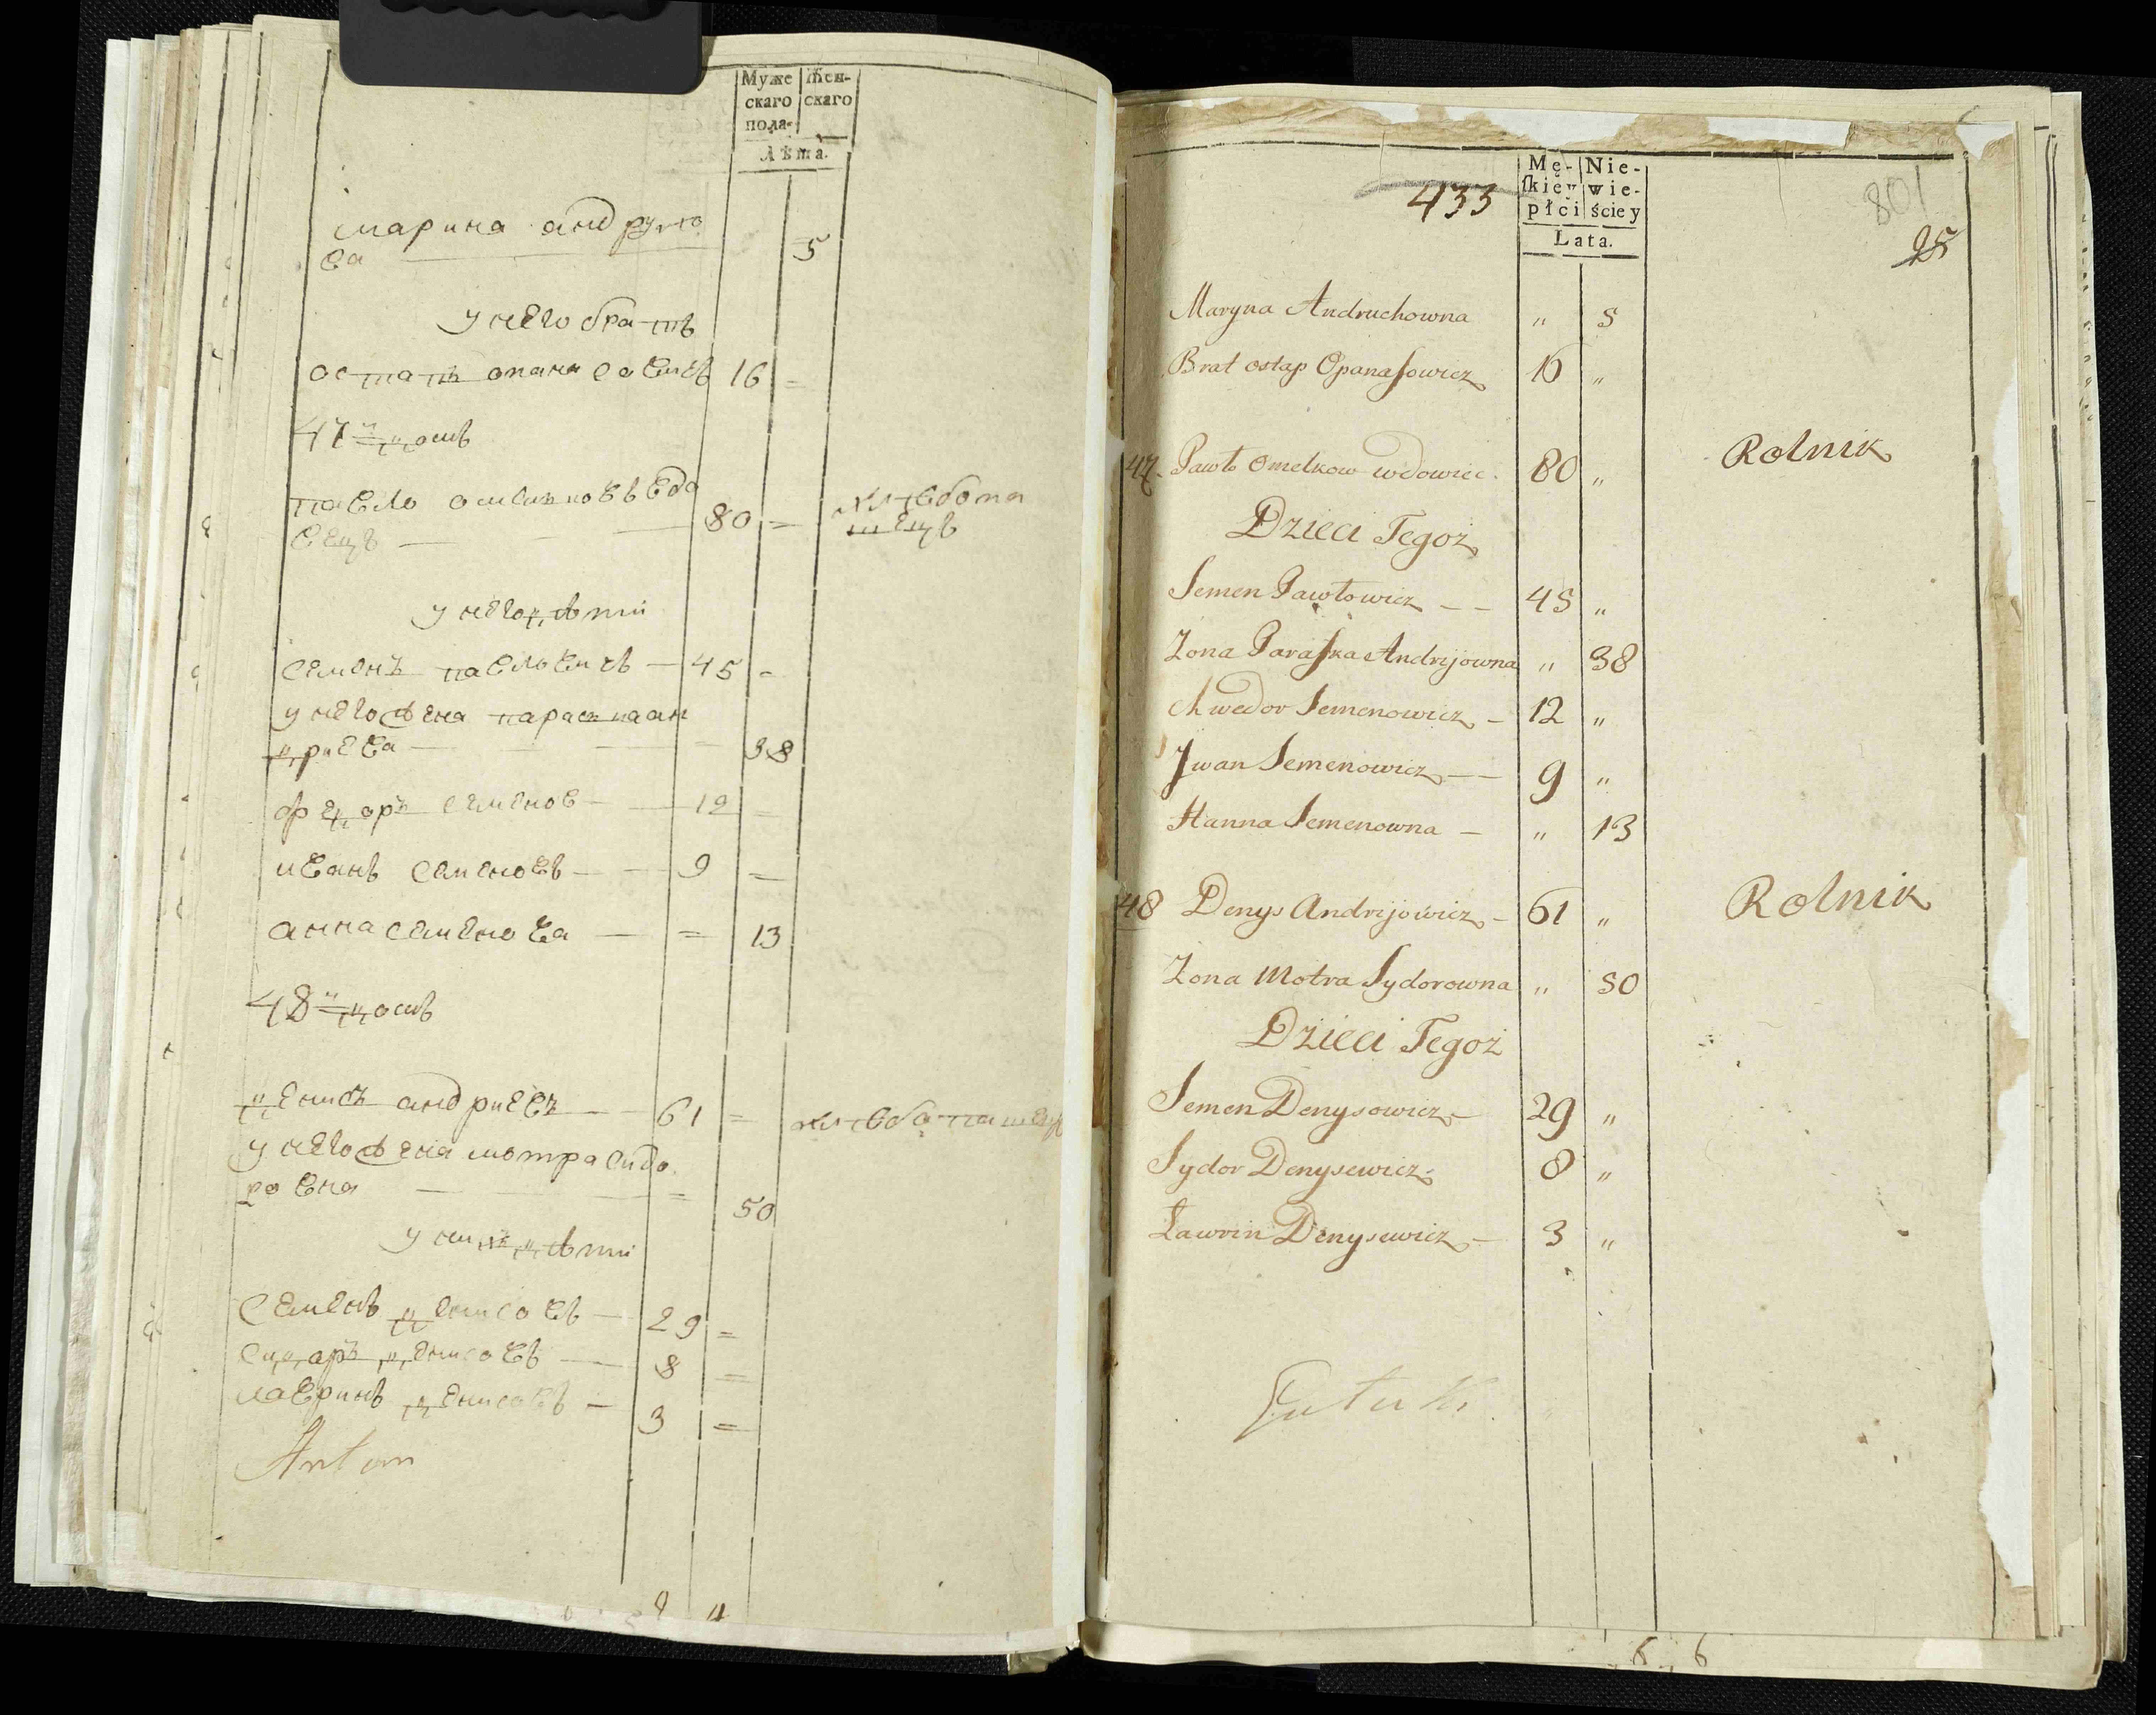 Муже
скаго
пола
Жен-
скаго
Лѣта.
марина андрухо
ва 5
у него братъ
остапъ опанасовичь 16 =
47 домъ
павло омелковъ вдо
вецъ 80 = хлѣбопа
шецъ
у него дѣти
семенъ павловичь 45 =
у него жена параска ан
дриева 38
федоръ семенов 12 =
иванъ семеновъ 9 =
анна семенова = 13
48 домъ
денисъ андриевъ 61 = хлѣбопашец
у него жена мотра сидо
ровна = 50
у них дѣти
семенъ денисовъ 29 =
сидоръ денисовъ 8 =
лавринъ денисовъ 3 =
Anton
433
Mę-
skiey
płci
Nie-
wie-
ściey
Lata.
801
25
Maryna Andruchowna " 5
Brat ostap Opanasowicz 16 "
47. Pawło Omelkow wdowiec. 80 " Rolnik
Dzieci Tegoż
Semen Pawłowicz 45 "
Żona Paraska Andrijowna " 38
Chwedor Semenowicz 12 "
Jwan Semenowicz 9 "
Hanna Semenowna " 13
48 Denys Andrijowicz 61 " Rolnik
Żona Motra Sydorowna " 50
Dzieci Tegoż
Semen Denysowicz 29 "
Sydor Denysewicz 8 "
Ławrin Denysewicz 3 "
6 6